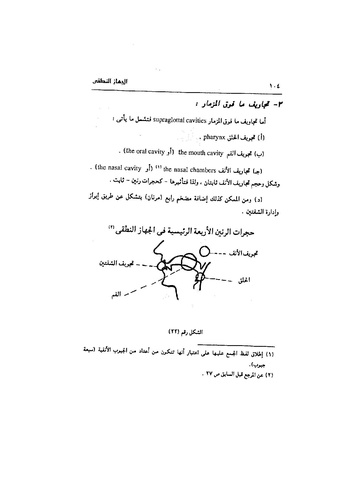 ١٠٤ الجهاز النطقى
٣- تجاويف ما فوق المزمار :
أما تجاويف ما فوق المزمار supraglottal cavities فتشمل ما يأتى :
(أ) تجويف الحلق pharynx .
(ب) تجويف الفم the mouth cavity (أو the oral cavity) .
(جـ) تجاويف الأنف the nasal chambers (١) (أو the nasal cavity) .
وشكل وحجم تجاويف الأنف ثابتان ، ولذا فتأثيرها - كحجرات رنين - ثابت .
(د) ومن الممكن كذلك إضافة مضخم رابع (مرنان) يتشكل عن طريق إبراز
وإدارة الشفتين .
حجرات الرنين الأربعة الرئيسية فى الجهاز النطقى (٢)
تجويف الأنف
تجويف الشفتين
الحلق
الفم
الشكل رقم (٢٢)
(١) إطلاق لفظ الجمع عليها على اعتبار أنها تتكون من أعداد من الجيوب الأنفية (سبعة
جيوب).
(٢) عن المرجع قبل السابق ص ٢٧ .